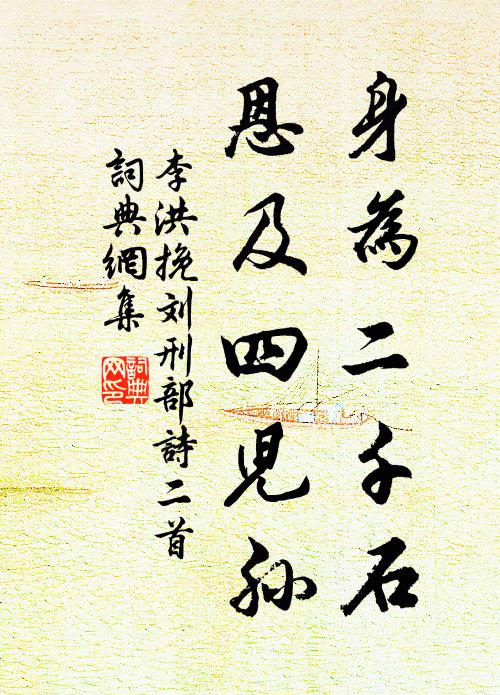 身為二千石
恩及四児孫
李洪挽刘刑部詩二首
詞典網集
詞典网印